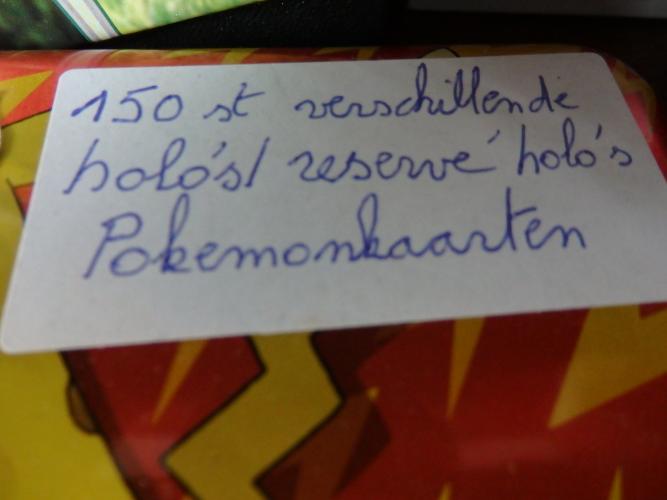 150 st verschillende
holo's/ reservé holo's
Pokemonkaarten